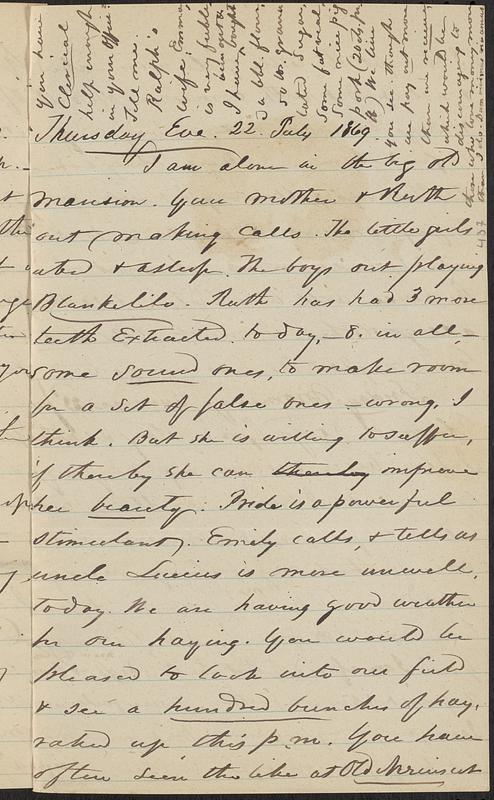 Thursday Eve. 22. July 1869
I am alone in the big old
mansion. Your mother & Ruth
out making calls. The little girls
abed & asleep. The boys out playing
Blankelilo. Ruth has had 3 more
teeth Extracted to day, - 8. in all, -
some sound ones, to make room
for a set of false ones - wrong, I
think. But she is willing to suffer,
if thereby she can thereby improve
her beauty. Pride is a powerful
stimulant. Emily calls, & tells us
uncle Lucius is more unwell,
today. We are having good weather
for our haying. You would be
pleased to look into our field
& see a hundred bunches of hay,
raked up this p.m. You have
often seen the like at Old
You have
Clerical
help enough
in your office?
Tell me.
Ralph's
wife, Emma,
is very feeble
I have bought
a bbl. flour
50 lb. granu
lated Sugar,
Some fat and
Some nice pig
pork
We live
You see though
we pay out more
than we receive,
which would be
discouraging to
those who love money more
than I do.